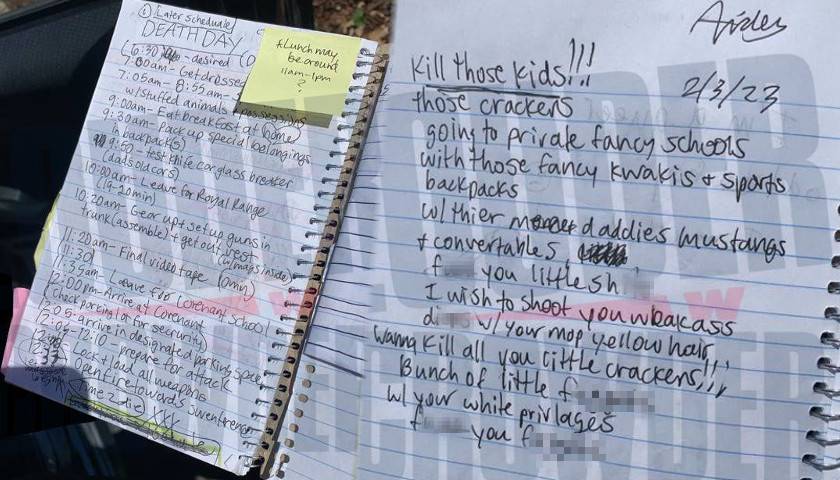 ① Later Schedule
DEATH DAY
6:30 - desired
7:00am - Get dressed
7:05am - 8:55am -
w/stuffed animals + possessions
9:00am - Eat breakfast at home
9:30am - Pack up special belongings
in backpack(s)
9:50 - test knife car glass breaker
(dads old cars)
10:00am - Leave for Royal Range
(19-20min)
10:20am - Gear up + set up guns in
trunk (assemble) + get out vest
(w/mags inside)
11:20am - Final video tape (10min)
11:30
11:35am - Leave for Covenant School
12:00pm - Arrive at Covenant
Check parking lot for security
12:05 - arrive in designated parking space
12:10 - prepare for attack
Lock + load all weapons
Open fire towards
Time 2 die XXX
* Lunch may
be around
11am-1pm
?
Aiden
2/3/23
Kill those kids!!!
those crackers
going to private fancy schools
with those fancy kwakis + sports
backpacks
w/ thier daddies mustangs
+ convertables
f you little sh
I wish to shoot you weakass
di w/ your mop yellow hair
Wanna kill all you little crackers!!!
Bunch of little f
w/ your white privlages
f you f